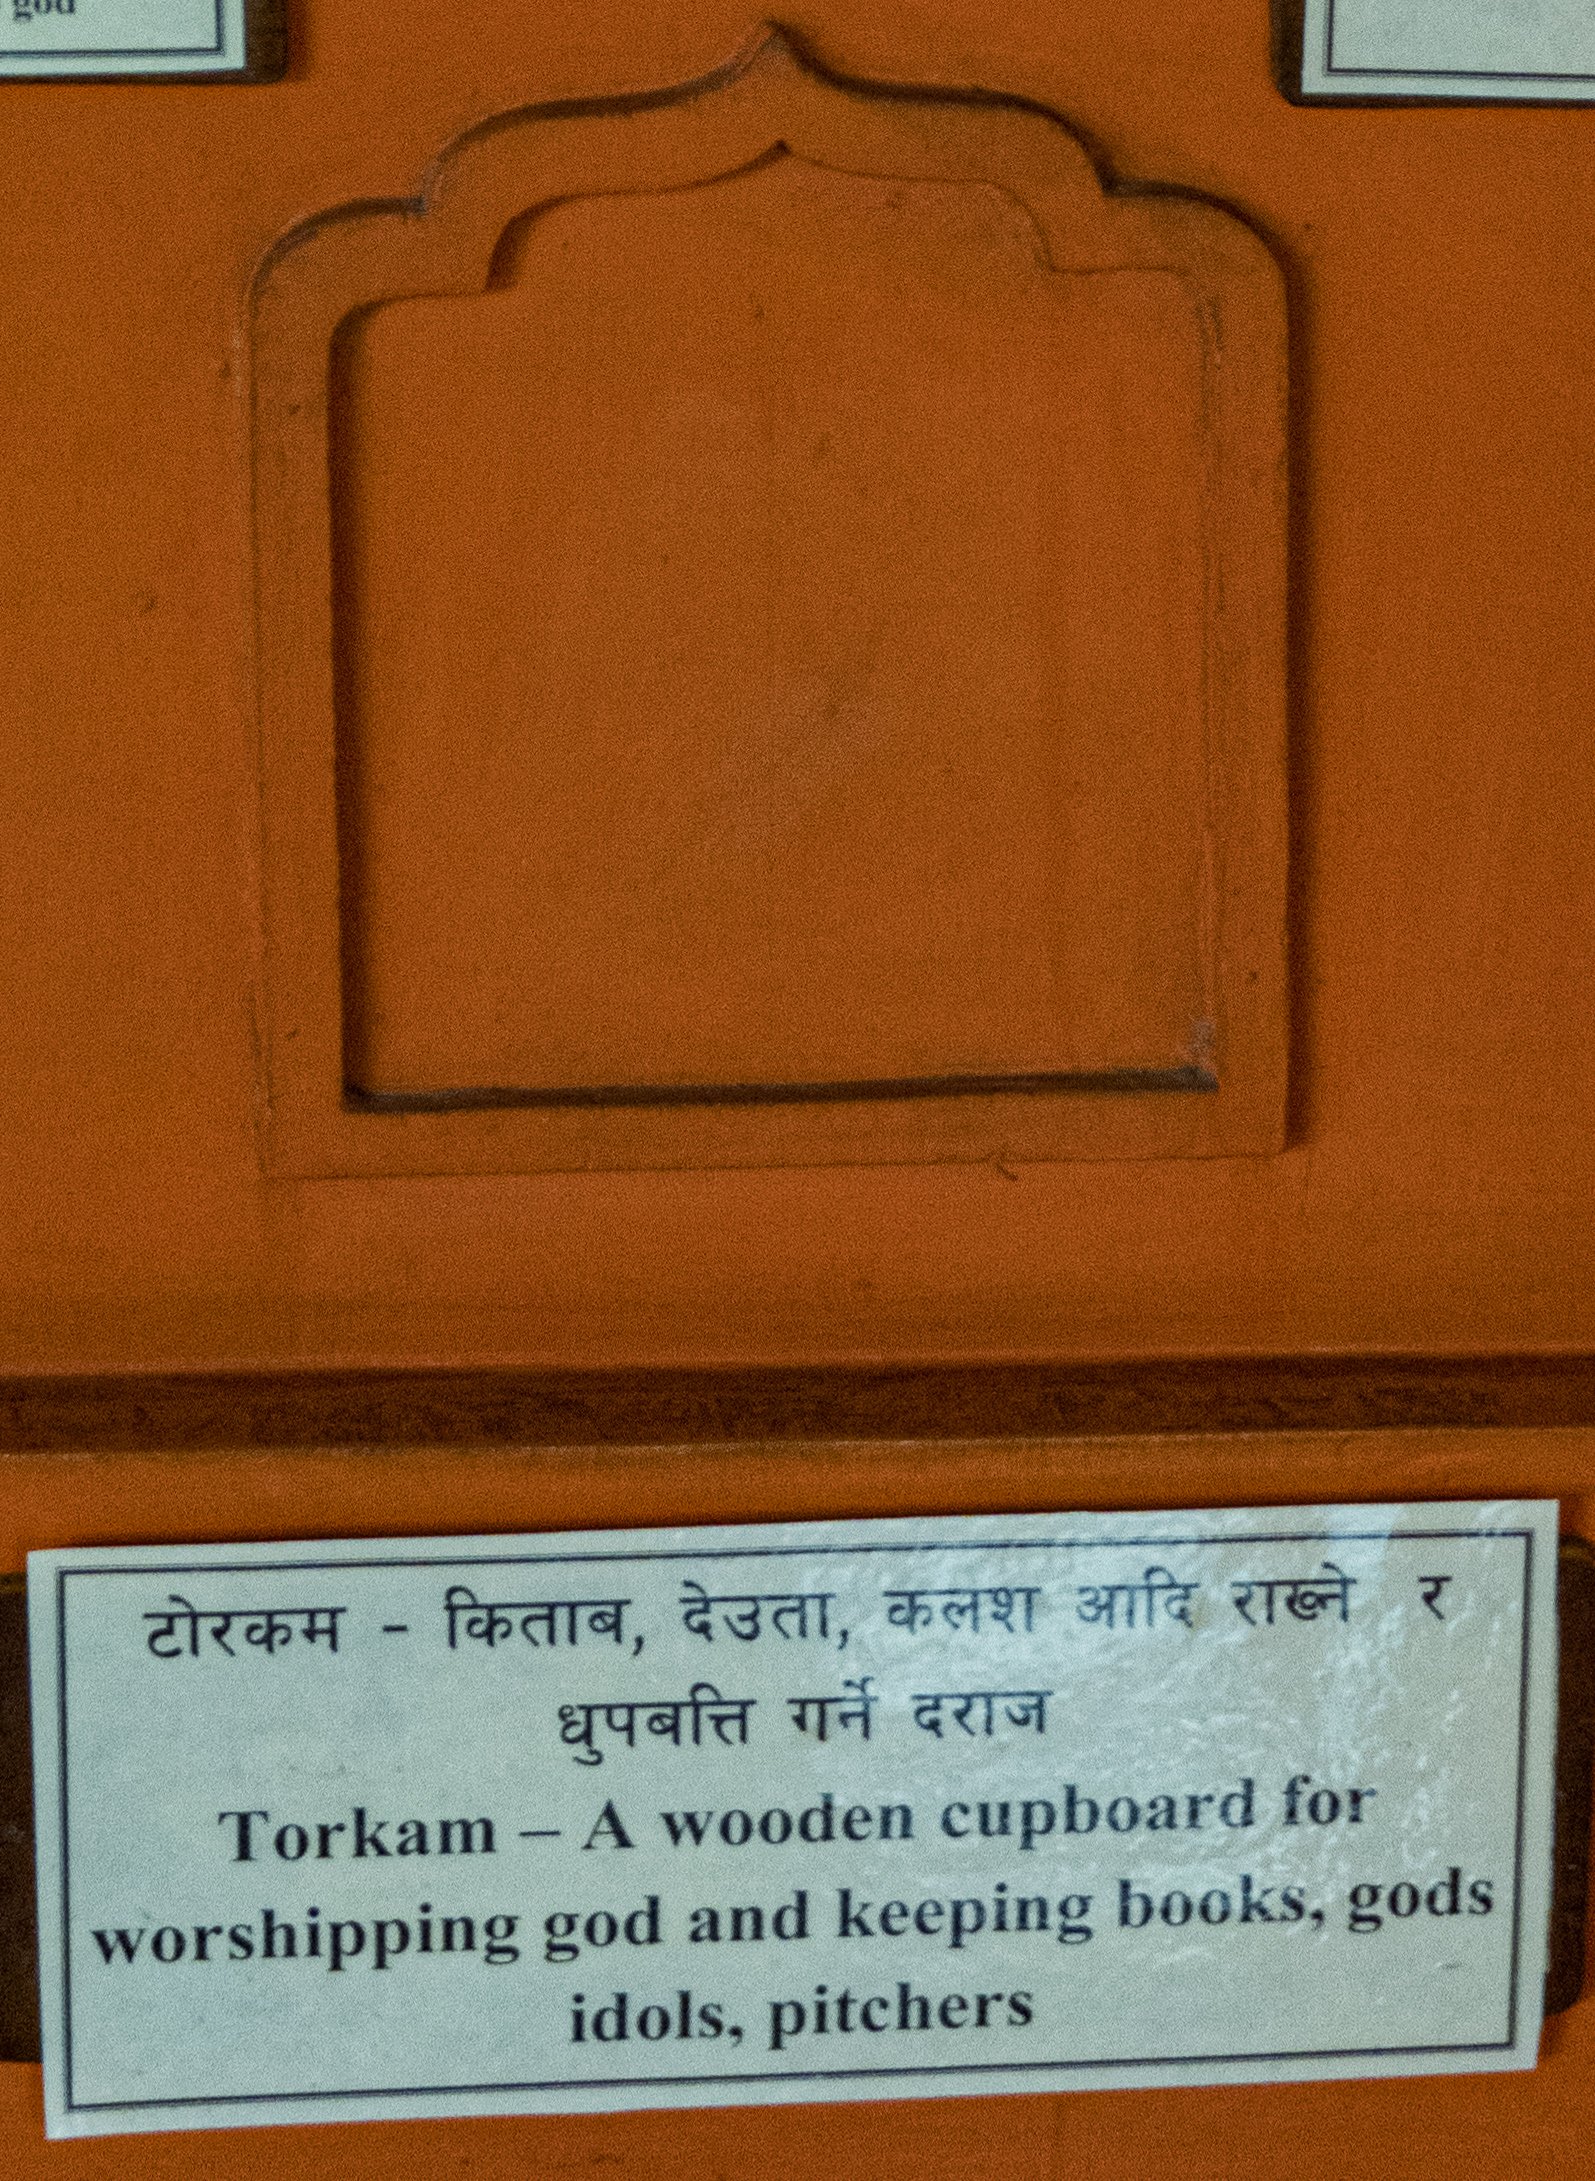 god
टोरकम - किताब, देउता, कलश आदि राख्ने र
धुपबत्ति गर्ने दराज
Torkam – A wooden cupboard for
worshipping god and keeping books, gods
idols, pitchers